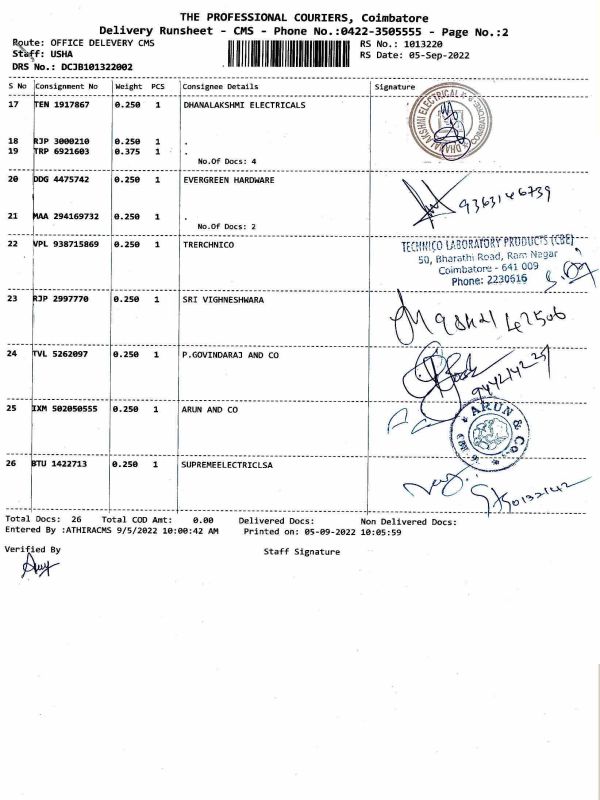 THE PROFESSIONAL COURIERS, Coimbatore
Delivery Runsheet - CMS - Phone No.:0422-3505555 - Page No.:2
Route: OFFICE DELEVERY CMS
RS No.: 1013220
Staff: USHA
RS Date: 05-Sep-2022
DRS No.: DCJB101322002
S No Consignment No Weight PCS Consignee Details Signature
17 TEN 1917867 0.250 1 DHANALAKSHMI ELECTRICALS
DHANALAKSHMI ELECTRICALS COIMBATORE
18 RJP 3000210 0.250 1 .
19 TRP 6921603 0.375 1 .
No.Of Docs: 4
20 DDG 4475742 0.250 1 EVERGREEN HARDWARE
9363146739
21 MAA 294169732 0.250 1 .
No.Of Docs: 2
22 VPL 938715869 0.250 1 TRERCHNICO
TECHNICO LABORATORY PRODUCTS (CBE)
50, Bharathi Road, Ram Nagar
Coimbatore - 641 009
Phone: 2230616
23 RJP 2997770 0.250 1 SRI VIGHNESHWARA
24 TVL 5262097 0.250 1 P.GOVINDARAJ AND CO
25 IXM 502050555 0.250 1 ARUN AND CO
ARUN & Co.
26 BTU 1422713 0.250 1 SUPREMEELECTRICLSA
Total Docs: 26 Total COD Amt: 0.00 Delivered Docs: Non Delivered Docs:
Entered By :ATHIRACMS 9/5/2022 10:00:42 AM Printed on: 05-09-2022 10:05:59
Verified By
Staff Signature